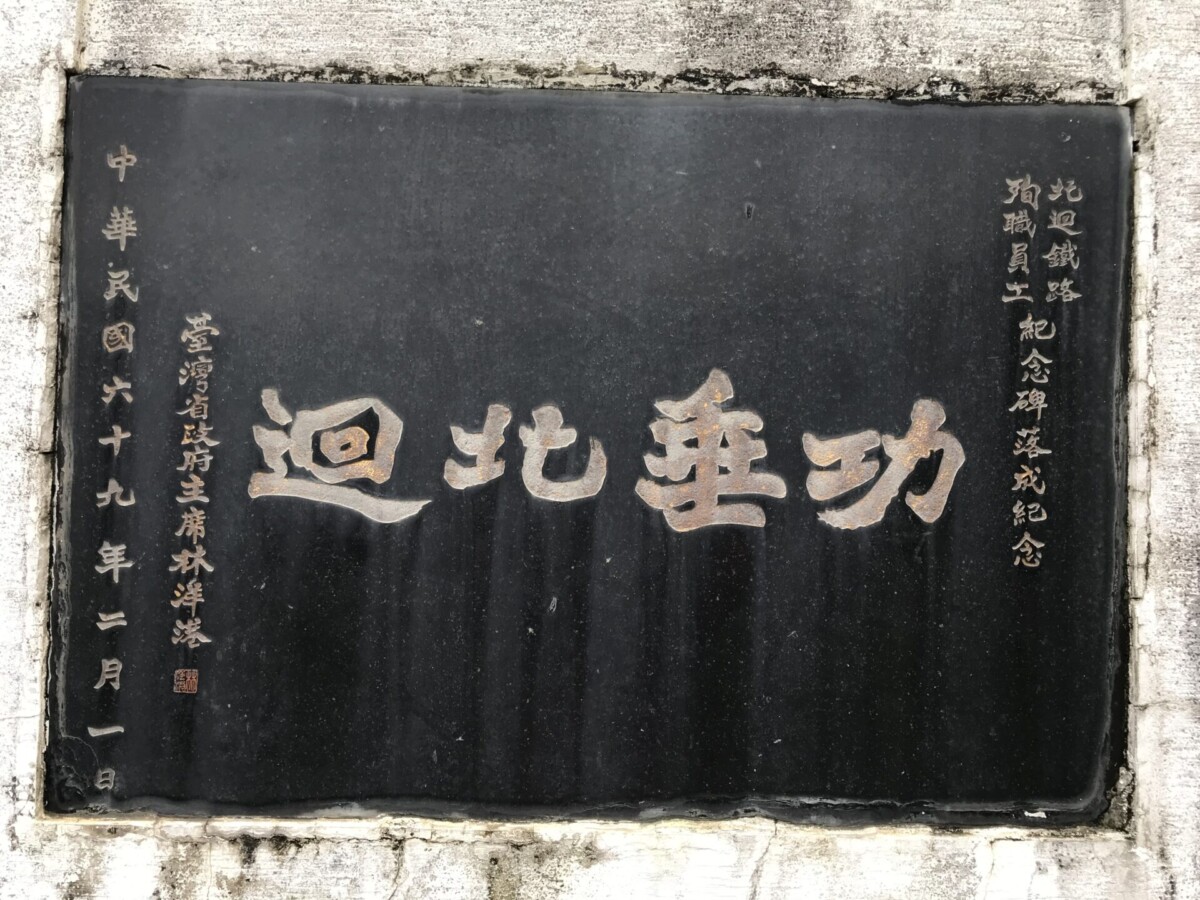 北迴鐵路
殉職員工
紀念碑落成紀念
功垂北迴
臺灣省政府主席林洋港
中華民國六十九年二月一日